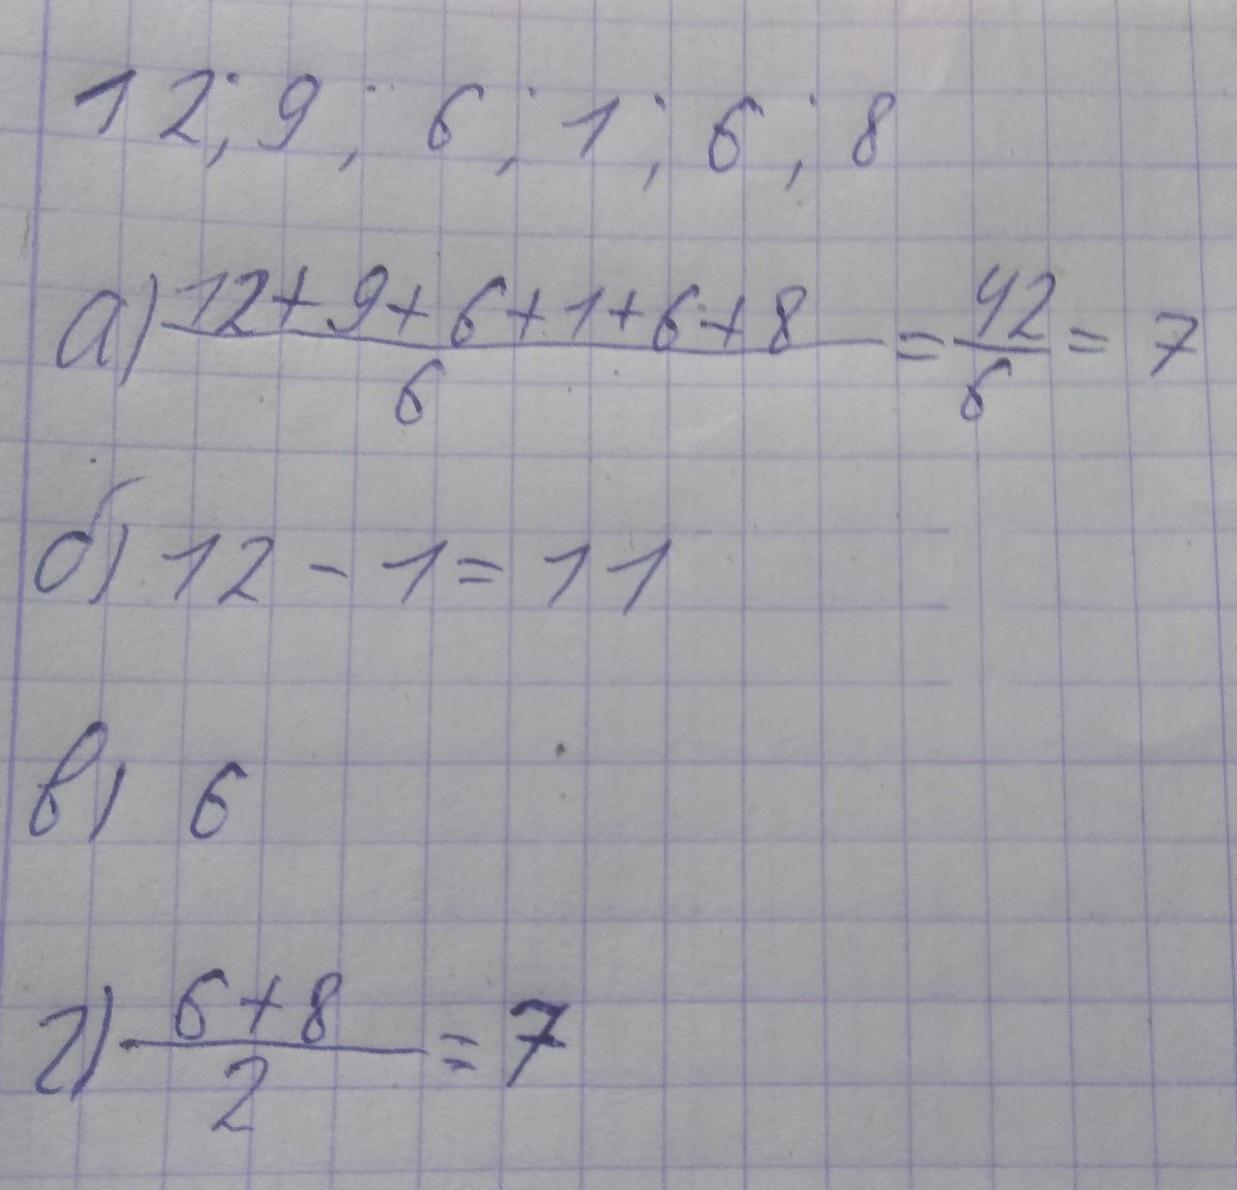 12; 9; 6; 1; 6; 8
а) 12+9+6+1+6+8/6 = 42/6 = 7
б) 12 - 1 = 11
в) 6
г) 6+8/2 = 7